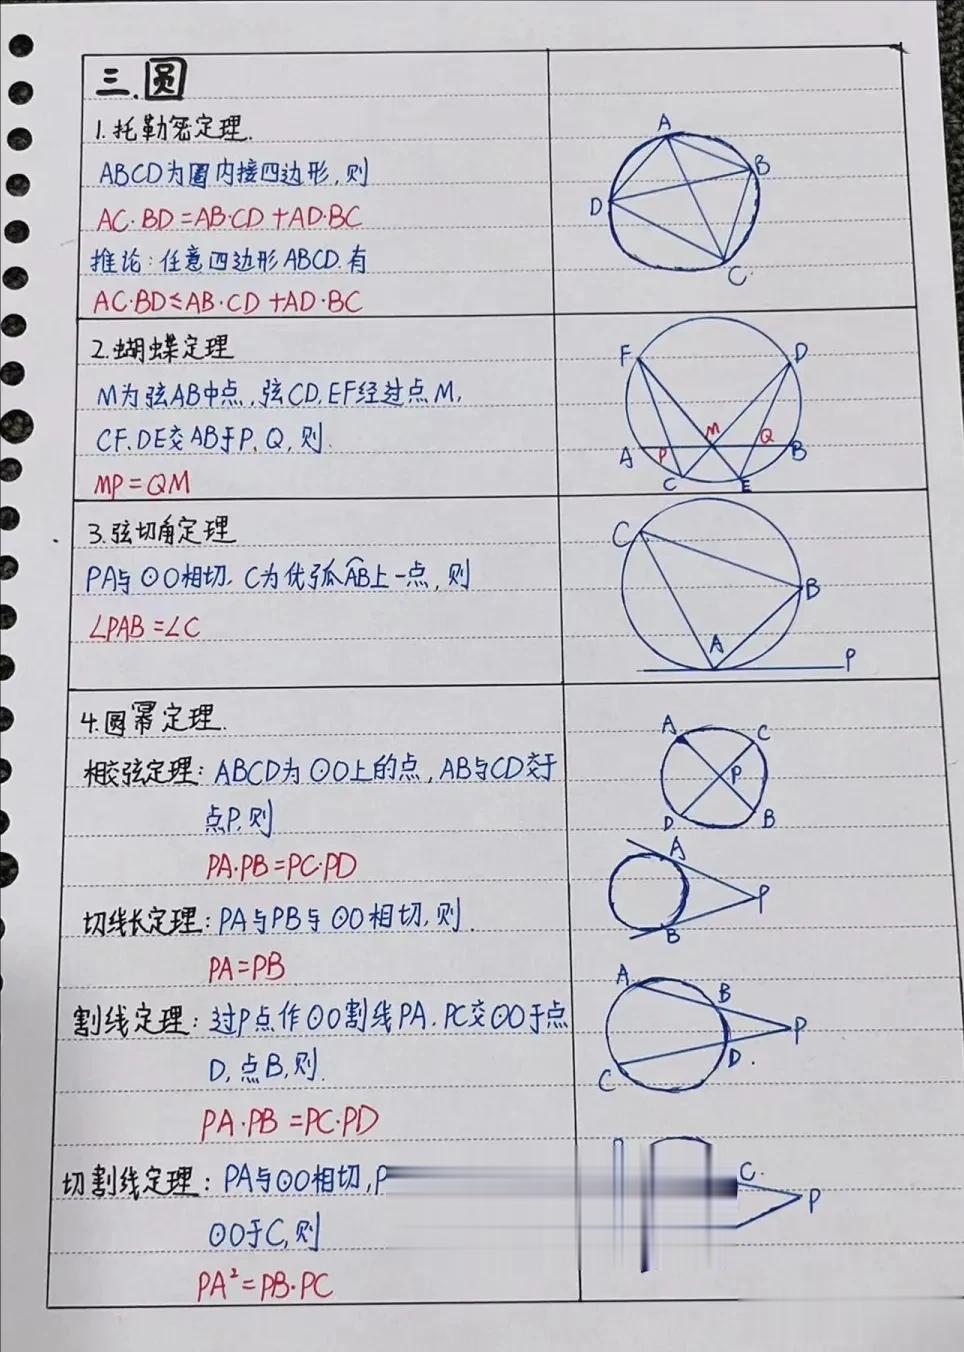 三.圆
1.托勒密定理.
ABCD为圆内接四边形,则
AC·BD=AB·CD+AD·BC
推论:任意四边形ABCD.有
AC·BD≤AB·CD+AD·BC
A
B
D
C
2.蝴蝶定理
M为弦AB中点,弦CD,EF经过点M,
CF.DE交AB于P,Q,则.
MP=QM
F
D
M
Q
A
P
B
C
E
3.弦切角定理
PA与⊙O相切.C为优弧AB上一点,则
∠PAB=∠C
C
B
A
P
4.圆幂定理.
相交弦定理:ABCD为⊙O上的点,AB与CD交于
点P,则
PA·PB=PC·PD
A
C
P
D
B
切线长定理:PA与PB与⊙O相切,则.
PA=PB
A
P
B
割线定理:过P点作⊙O割线PA.PC交⊙O于点
D,点B,则.
PA·PB=PC·PD
A
B
P
D.
C
切割线定理:PA与⊙O相切,P
⊙O于C,则
PA²=PB·PC
C.
P